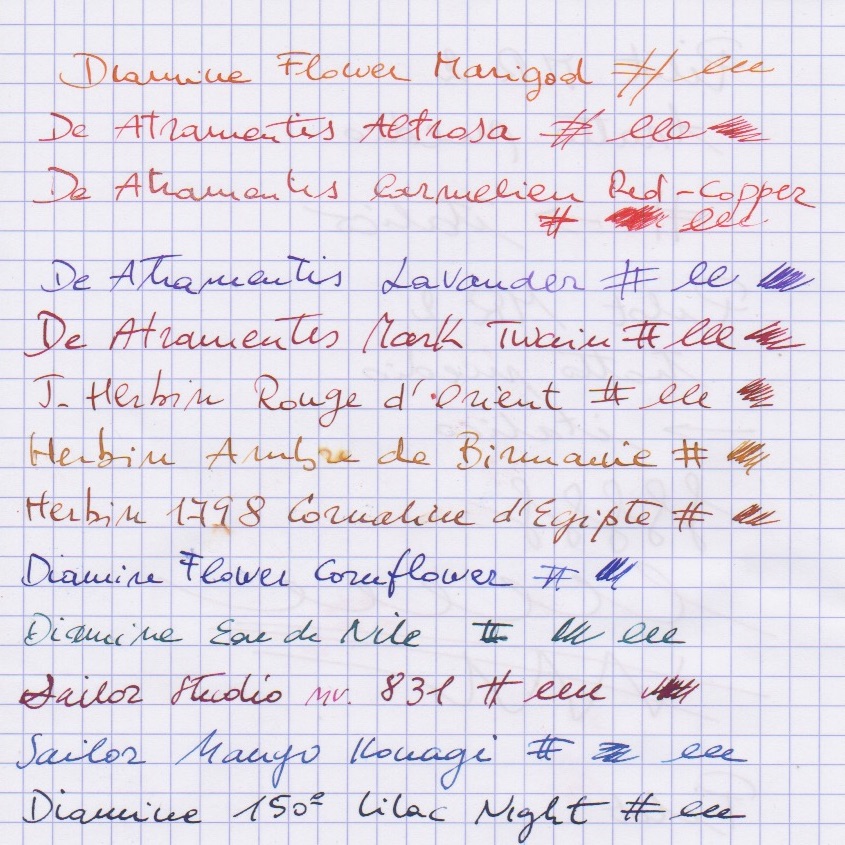 Diamine Flower Marigod #
De Atramentis Altrosa #
De Atramentis Carnelien Red-Copper
#
De Atramentis Lavander #
De Atramentis Mark Twain #
J. Herbin Rouge d'Orient #
Herbin Ambre de Birmanie #
Herbin 1798 Cornaline d'Egipte #
Diamine Flower Cornflower #
Diamine Eau de Nile #
Sailor Studio nr. 831 #
Sailor Manyo Konagi #
Diamine 150° Lilac Night #